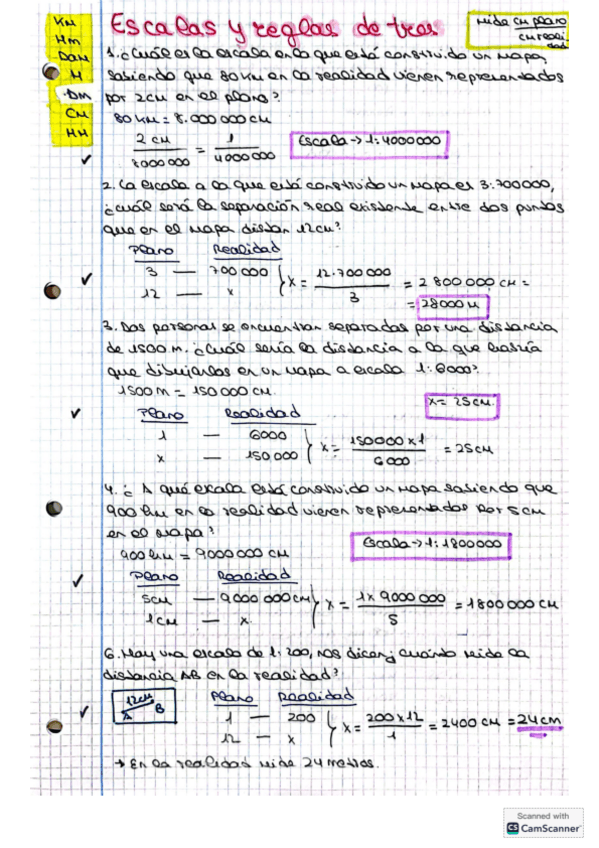 KM
Hm
Dam
M
Dm
CM
MM
Escalas y reglas de tres
mida cm plano
cm reali-
dad
1. ¿Cuál es la escala en la que está construido un mapa,
sabiendo que 80 KM en la realidad vienen representados
por 2cm en el plano?
80 KM = 8.000 000 cm
2 cm / 8000 000 = 1 / 4000 000
Escala → 1:4000000
2. La escala a la que está construido un mapa es 3:700000,
¿cuál será la separación real existente entre dos puntos
que en el mapa distan 12cm?
Plano Realidad
3 — 700 000
12 — x
x = 12·700 000 / 3 = 2 800 000 cm =
= 28000 M
3. Dos personas se encuentran separadas por una distancia
de 1500 m. ¿Cuál sería la distancia a la que habría
que dibujarlos en un mapa a escala 1:6000?
1500 m = 150 000 cm.
x= 25cm.
Plano Realidad
1 — 6000
x — 150.000
x = 150000 x 1 / 6000 = 25cm
4. ¿A qué escala está construido un mapa sabiendo que
900 km en la realidad vienen representados por 5cm
en el mapa?
900 km = 9000 000 cm
Escala → 1:1800000
Plano Realidad
5cm — 9000 000 cm
1cm — x
x = 1 x 9000 000 / 5 = 1800 000 cm
6. Hay una escala de 1:200, nos dicen ¿cuánto mide la
distancia AB en la realidad?
12cm
A B
Plano Realidad
1 — 200
12 — x
x = 200 x 12 / 1 = 2400 cm = 24cm
→ En la realidad mide 24 metros.
Scanned with
CS CamScanner